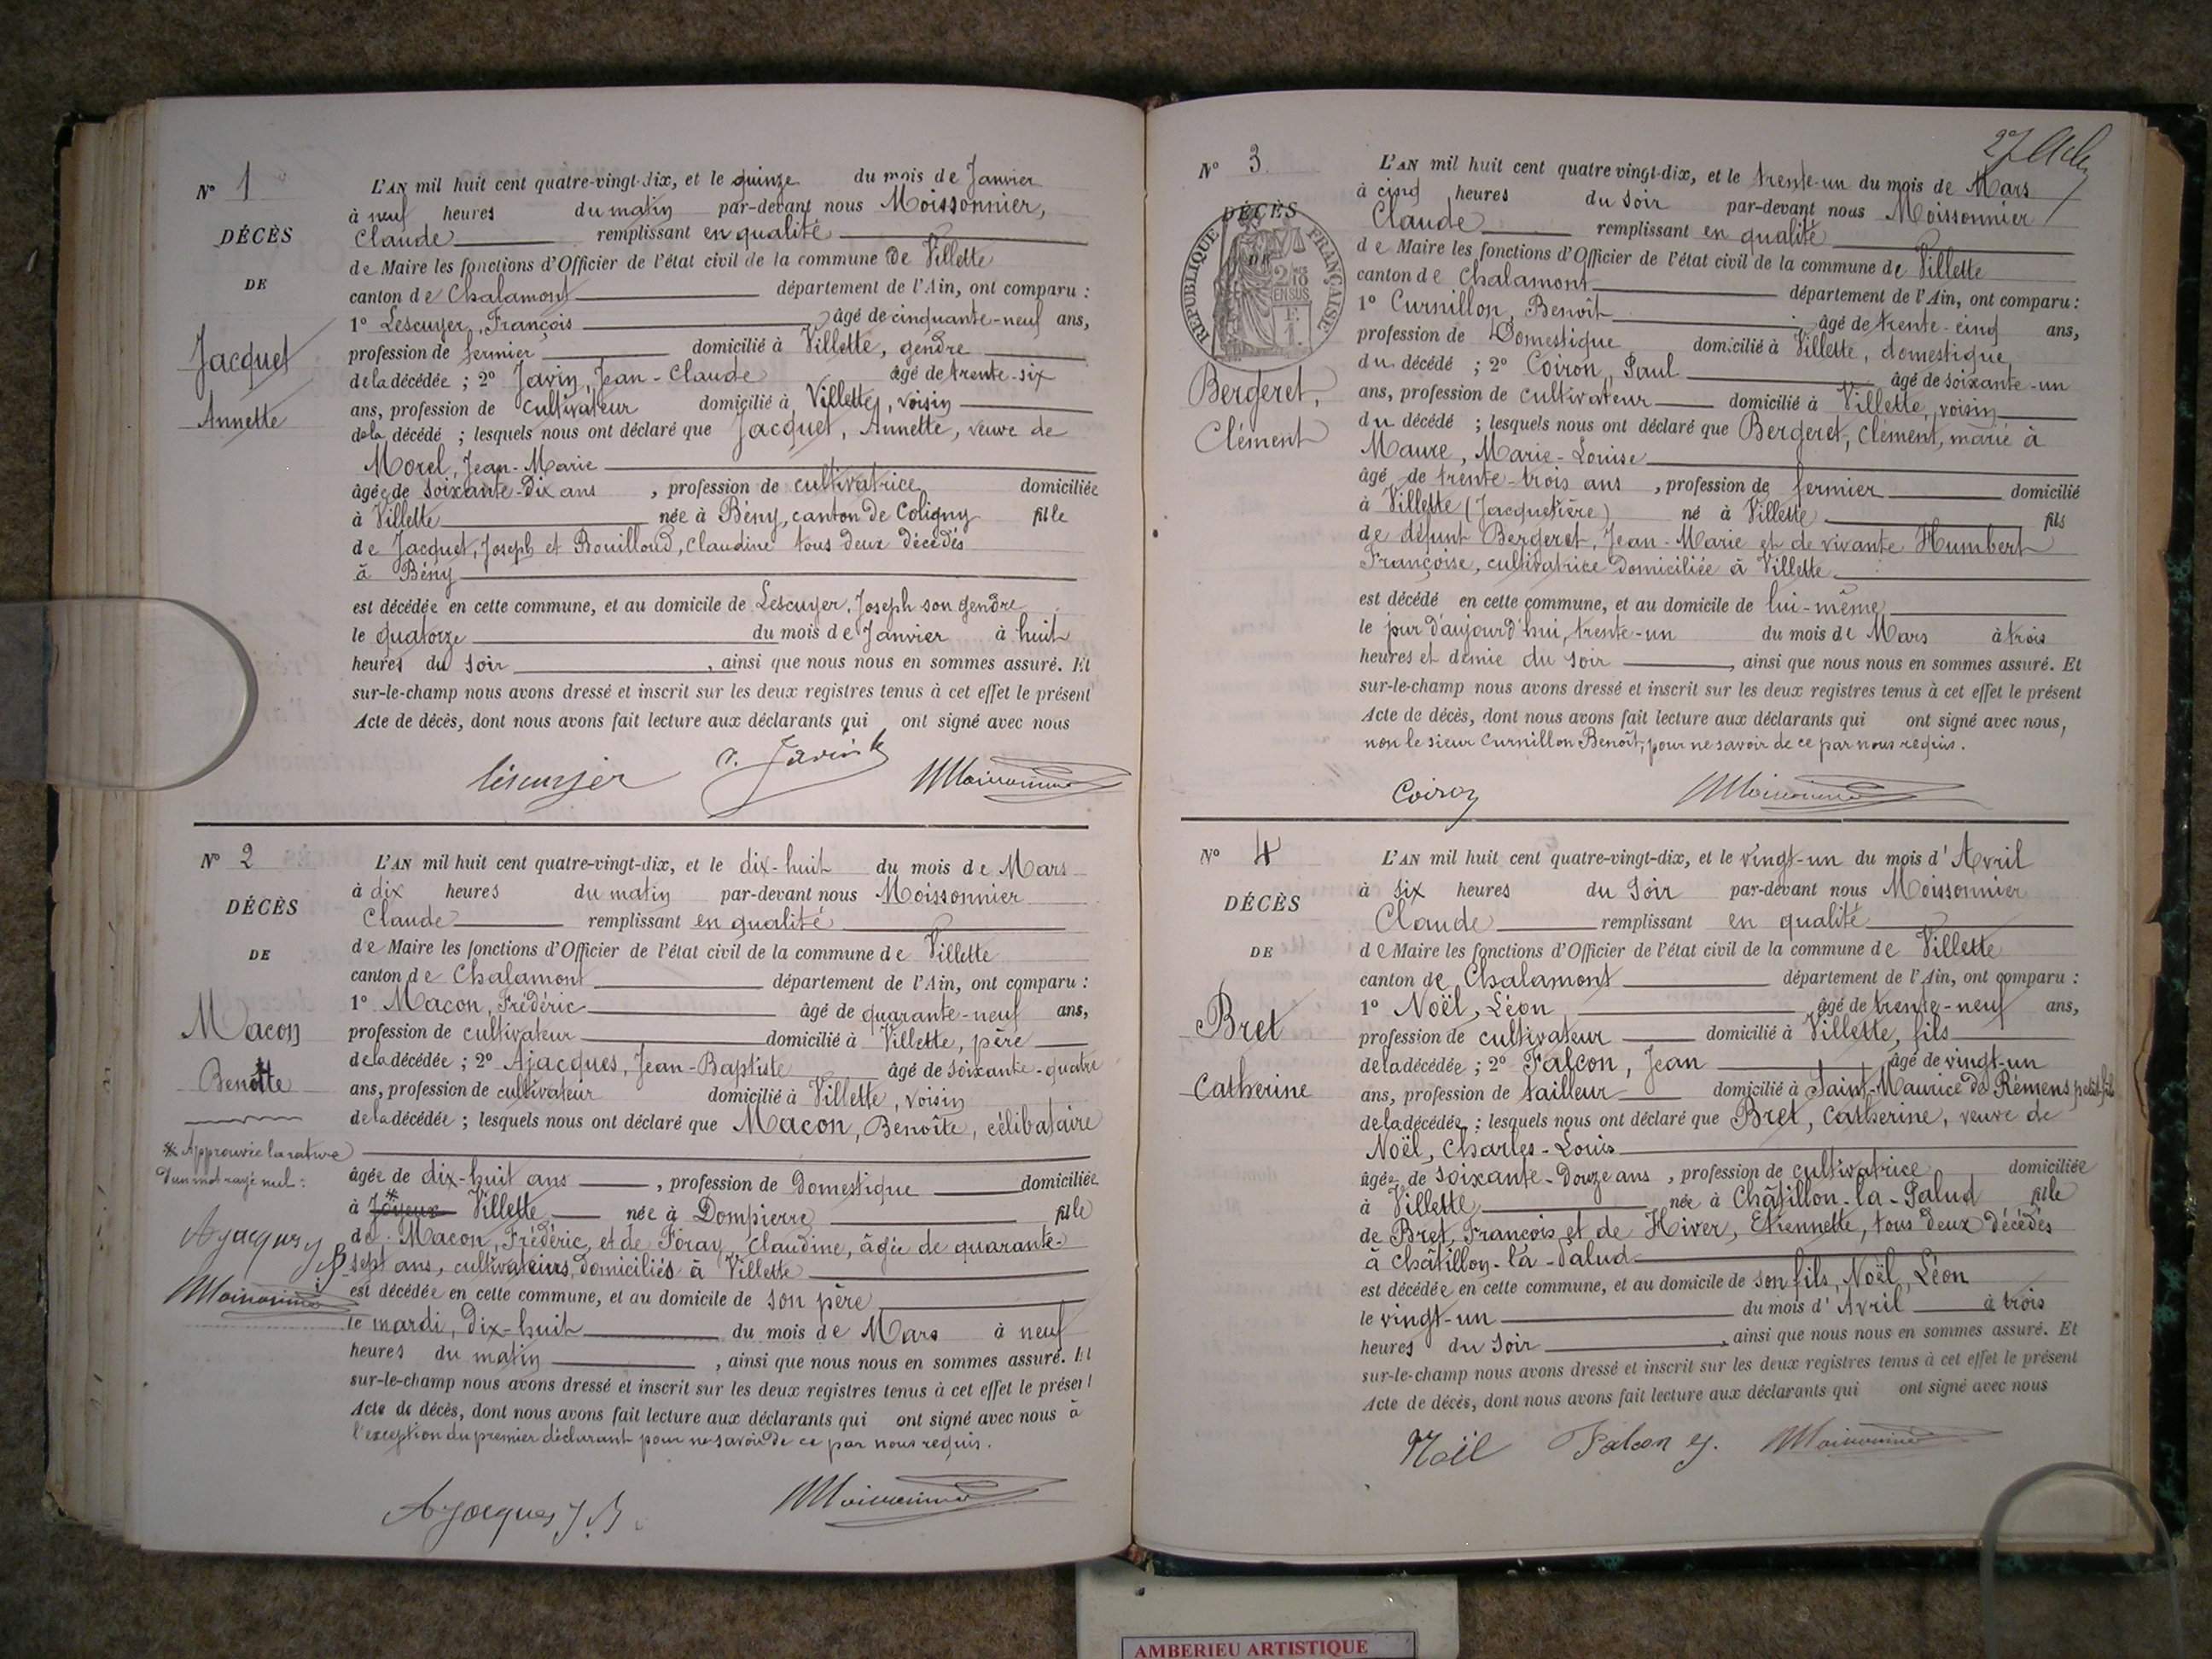 N° 1
L'AN mil huit cent quatre-vingt-dix, et le quinze du mois de Janvier
à neuf heures du matin par-devant nous Moissonnier,
DÉCÈS
Claude remplissant en qualité
de Maire les fonctions d'Officier de l'état civil de la commune de Villette
DE
canton de Chalamont département de l'Ain, ont comparu :
1° Lescuyer, François âgé de cinquante-neuf ans,
Jacquet
profession de fermier domicilié à Villette, gendre
de la décédée ; 2° Javin, Jean-Claude âgé de trente-six
Annette
ans, profession de cultivateur domicilié à Villette, voisin
de la décédé ; lesquels nous ont déclaré que Jacquet, Annette, veuve de
Morel, Jean-Marie
âgée de soixante-dix ans , profession de cultivatrice domiciliée
à Villette née à Bény, canton de Coligny fille
de Jacquet, Joseph et Rouilloud, Claudine tous deux décédés
à Bény
est décédée en cette commune, et au domicile de Lescuyer, Joseph son gendre
le quatorze du mois de Janvier à huit
heures du soir , ainsi que nous nous en sommes assuré. Et
sur-le-champ nous avons dressé et inscrit sur les deux registres tenus à cet effet le présent
Acte de décès, dont nous avons fait lecture aux déclarants qui ont signé avec nous
Lescuyer Javin Moissonnier
N° 2
L'AN mil huit cent quatre-vingt-dix, et le dix-huit du mois de Mars
à dix heures du matin par-devant nous Moissonnier
DÉCÈS
Claude remplissant en qualité
DE
de Maire les fonctions d'Officier de l'état civil de la commune de Villette
canton de Chalamont département de l'Ain, ont comparu :
Macon
1° Macon, Frédéric âgé de quarante-neuf ans,
profession de cultivateur domicilié à Villette, père
Benoîte
de la décédée ; 2° Ajacques, Jean-Baptiste âgé de soixante-quatre
ans, profession de cultivateur domicilié à Villette, voisin
de la décédée ; lesquels nous ont déclaré que Macon, Benoîte, célibataire
* Approuvée la rature
d'un mot rayé nul :
âgée de dix-huit ans , profession de Domestique domiciliée
à * Joyeux Villette née à Dompierre fille
de Macon, Frédéric, et de Foray, Claudine, âgée de quarante-
sept ans, cultivateurs, domiciliés à Villette
Ajacques J B
Moissonnier
est décédée en cette commune, et au domicile de son père
le mardi, dix-huit du mois de Mars à neuf
heures du matin , ainsi que nous nous en sommes assuré. Et
sur-le-champ nous avons dressé et inscrit sur les deux registres tenus à cet effet le présent
Acte de décès, dont nous avons fait lecture aux déclarants qui ont signé avec nous à
l'exception du premier déclarant pour ne savoir de ce par nous requis.
Ajacques J. B. Moissonnier
N° 3
L'AN mil huit cent quatre vingt-dix, et le trente-un du mois de Mars
à cinq heures du soir par-devant nous Moissonnier
DÉCÈS
Claude remplissant en qualité
DE
RÉPUBLIQUE FRANÇAISE
2/10 EN SUS
de Maire les fonctions d'Officier de l'état civil de la commune de Villette
canton de Chalamont département de l'Ain, ont comparu :
1° Curnillon, Benoît âgé de trente-cinq ans,
profession de Domestique domicilié à Villette, domestique
du décédé ; 2° Coiron, Paul âgé de soixante-un
Bergeret,
Clément
ans, profession de cultivateur domicilié à Villette, voisin
du décédé ; lesquels nous ont déclaré que Bergeret, Clément, marié à
Maure, Marie-Louise
âgé de trente-trois ans , profession de fermier domicilié
à Villette (Jacquetière) né à Villette fils
de défunt Bergeret, Jean-Marie et de vivante Humbert
Françoise, cultivatrice domiciliée à Villette
est décédé en cette commune, et au domicile de lui-même
le jour d'aujourd'hui, trente-un du mois de Mars à trois
heures et demie du soir , ainsi que nous nous en sommes assuré. Et
sur-le-champ nous avons dressé et inscrit sur les deux registres tenus à cet effet le présent
Acte de décès, dont nous avons fait lecture aux déclarants qui ont signé avec nous,
non le sieur Curnillon Benoît, pour ne savoir de ce par nous requis.
Coiron Moissonnier
N° 4
L'AN mil huit cent quatre-vingt-dix, et le vingt-un du mois d'Avril
à six heures du soir par-devant nous Moissonnier
DÉCÈS
Claude remplissant en qualité
DE
de Maire les fonctions d'Officier de l'état civil de la commune de Villette
canton de Chalamont département de l'Ain, ont comparu :
Bret
1° Noël, Léon âgé de trente-neuf ans,
profession de cultivateur domicilié à Villette, fils
de la décédée ; 2° Falcon, Jean âgé de vingt-un
Catherine
ans, profession de tailleur domicilié à Saint-Maurice de Rémens, petit fils
de la décédée ; lesquels nous ont déclaré que Bret, Catherine, veuve de
Noël, Charles-Louis
âgée de soixante-douze ans , profession de cultivatrice domiciliée
à Villette née à Châtillon-la-Palud fille
de Bret, François et de Hiver, Etiennette, tous deux décédés
à Châtillon-la-Palud
est décédée en cette commune, et au domicile de son fils, Noël, Léon
le vingt-un du mois d'Avril à trois
heures du soir , ainsi que nous nous en sommes assuré. Et
sur-le-champ nous avons dressé et inscrit sur les deux registres tenus à cet effet le présent
Acte de décès, dont nous avons fait lecture aux déclarants qui ont signé avec nous
Noël Falcon Moissonnier
AMBERIEU ARTISTIQUE